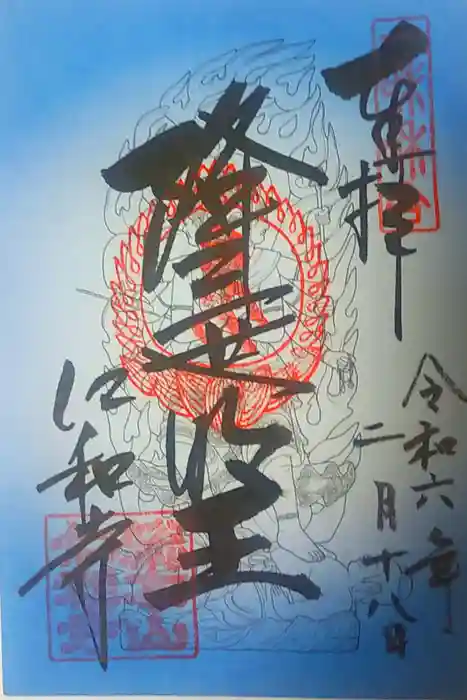 奉拝
令和六年
二月十八日
降三世
明王
仁和寺